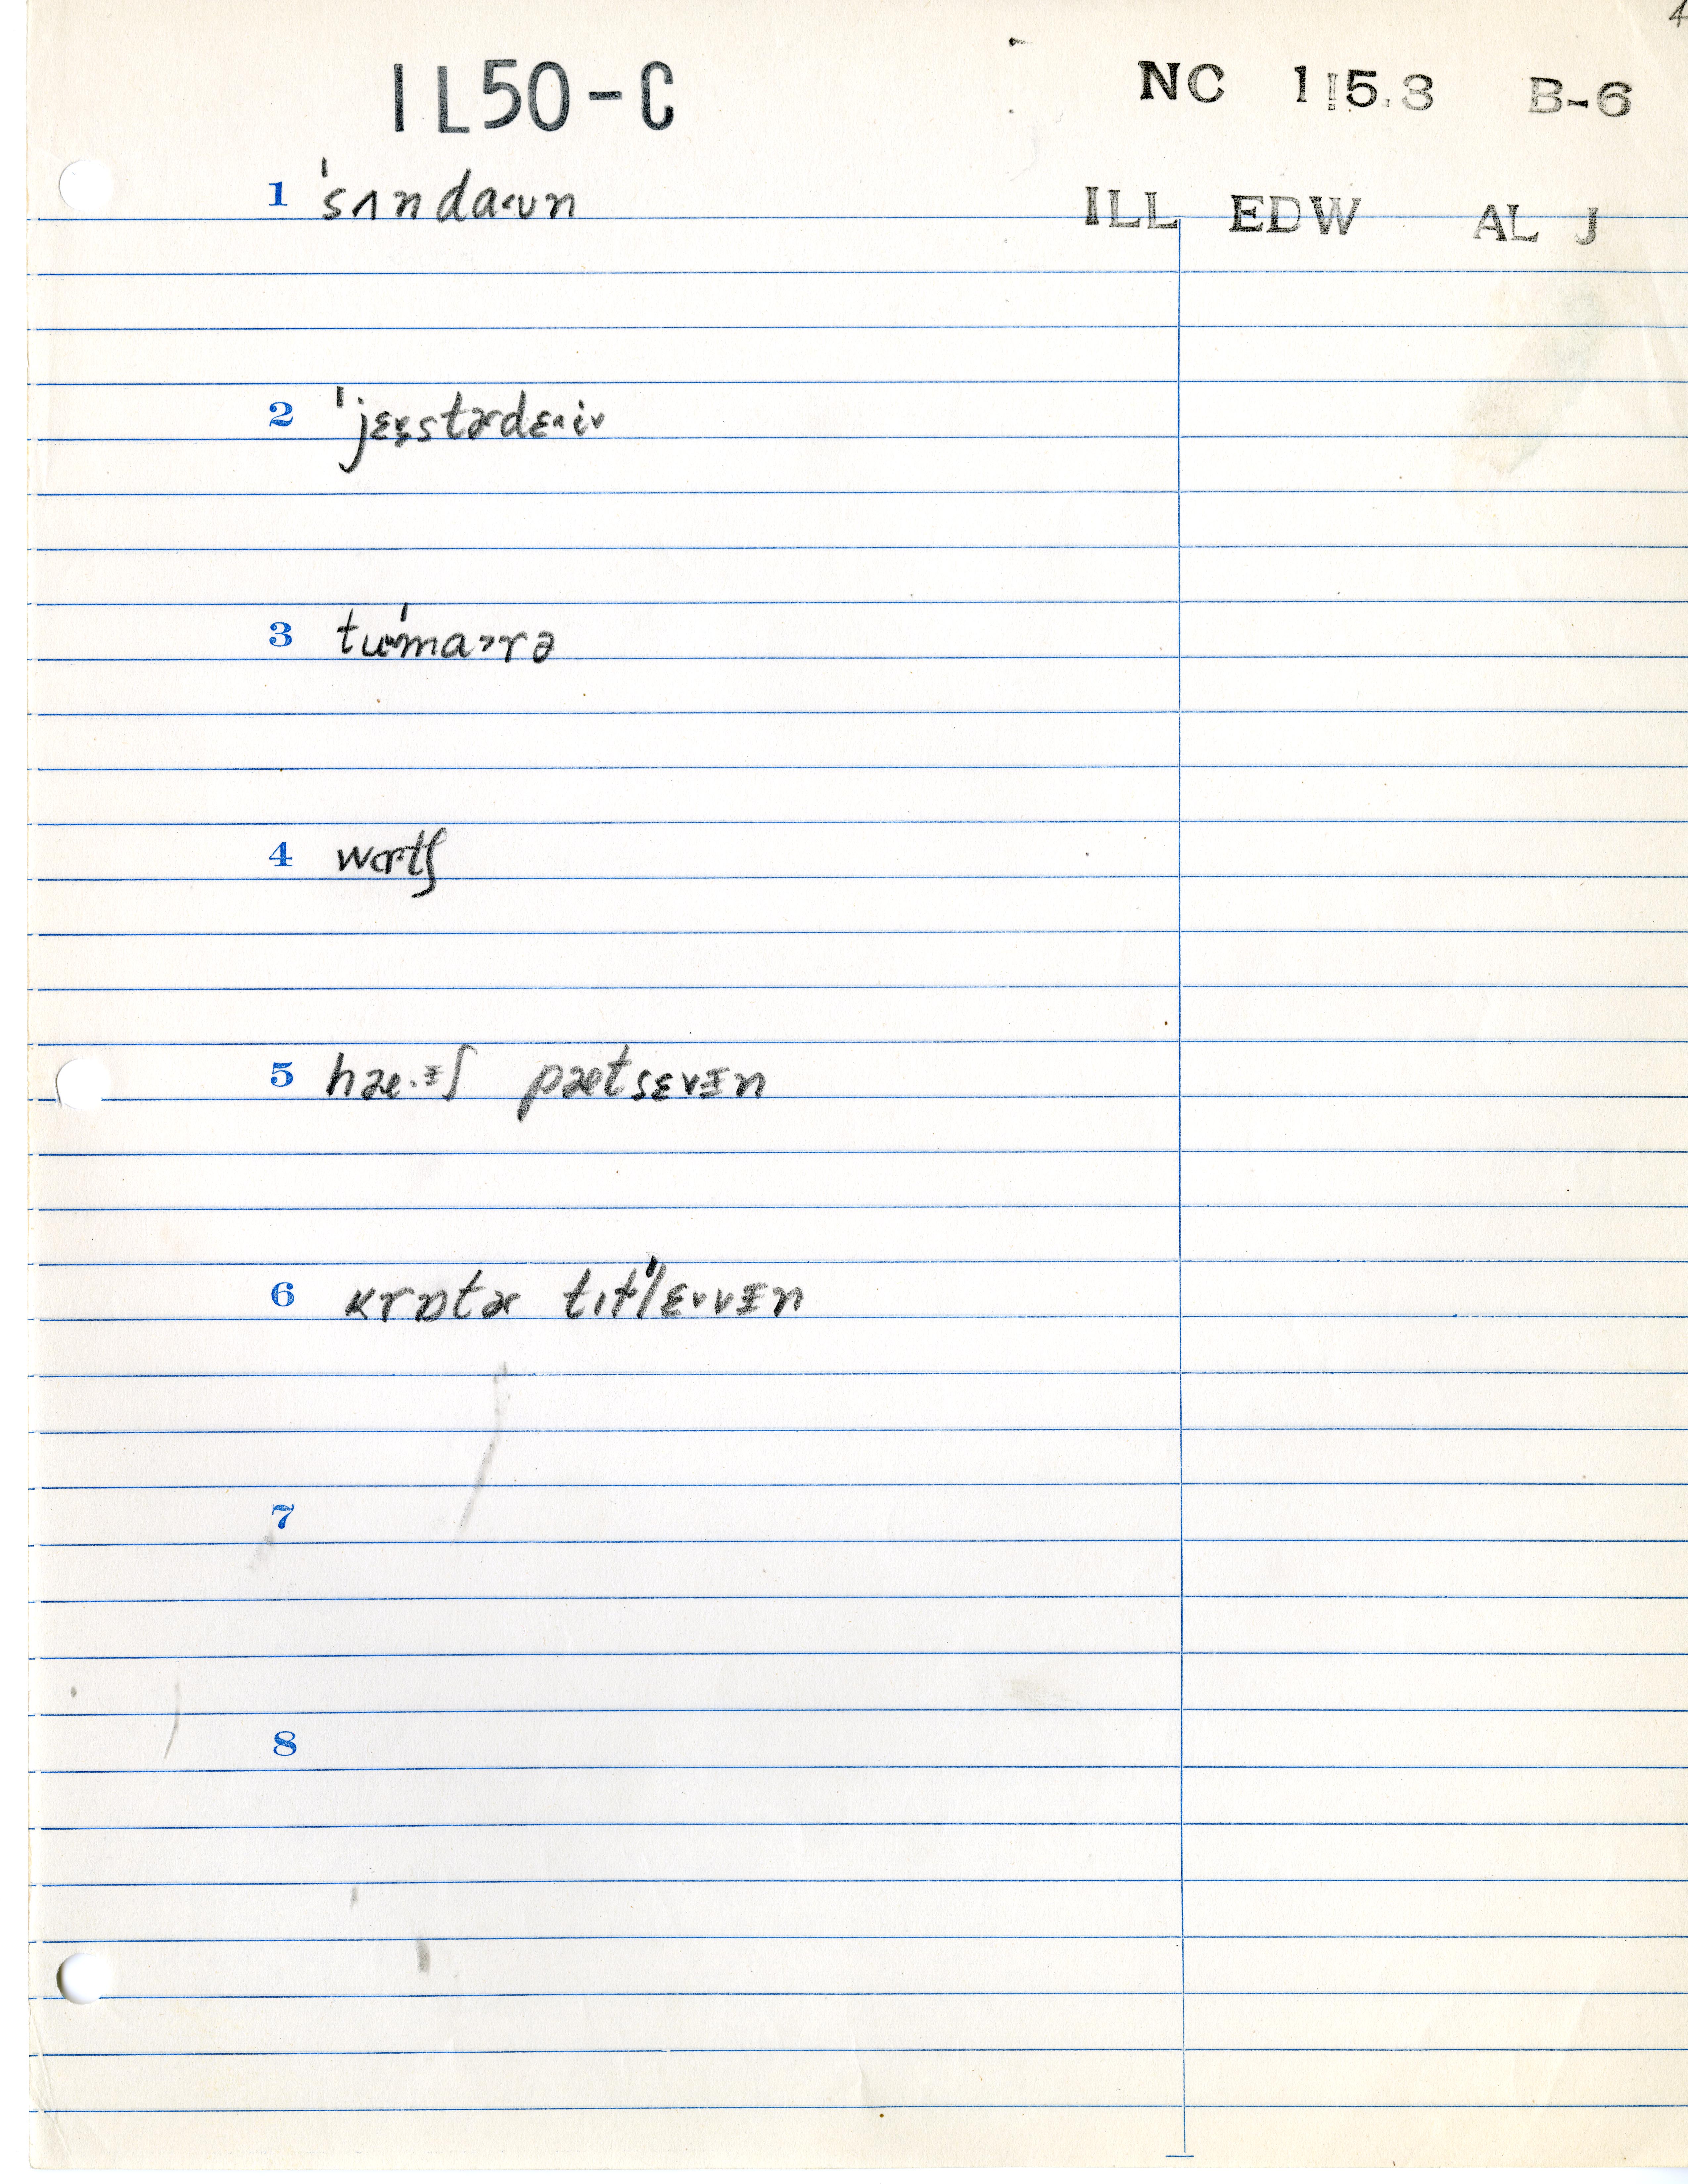 4
IL50-C
NC 115.3 B-6
ILL EDW AL J
1 ˈsʌndaˑ‹ʊn
2 ˈjɛ›stɚdɛ^i˅
3 tʊˈma›rə
4 wɑrtʃ
5 hæ·ᵻʃ pæt sɛvᵻn
6 krɒtɚ tɪlˈlɛ˅vᵻn
7
8